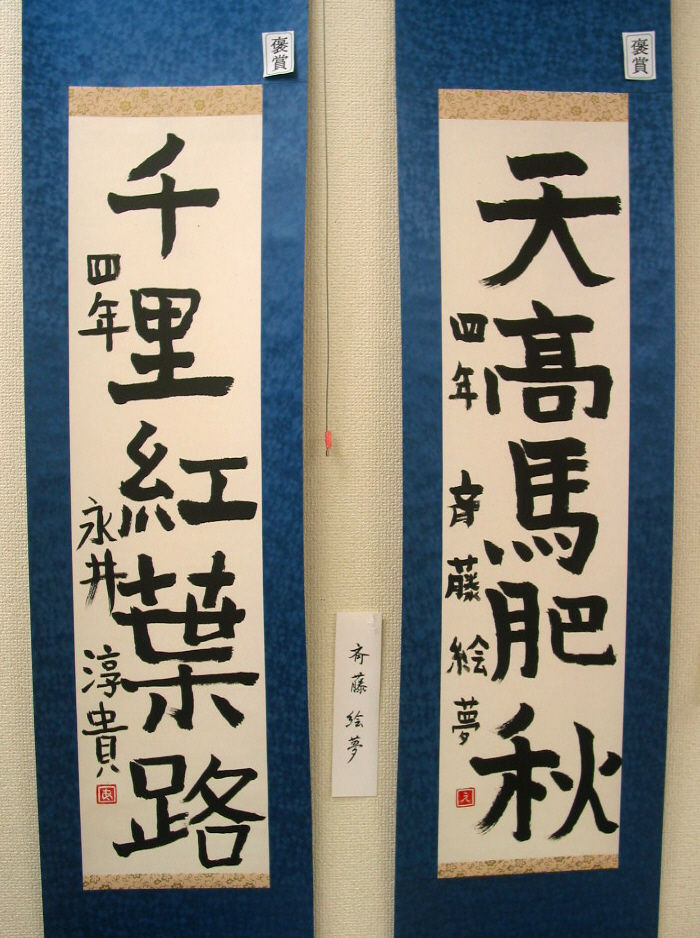 褒賞
天高馬肥秋
四年 斉藤絵夢
え
斉藤絵夢
褒賞
千里紅葉路
四年 永井淳貴
あ